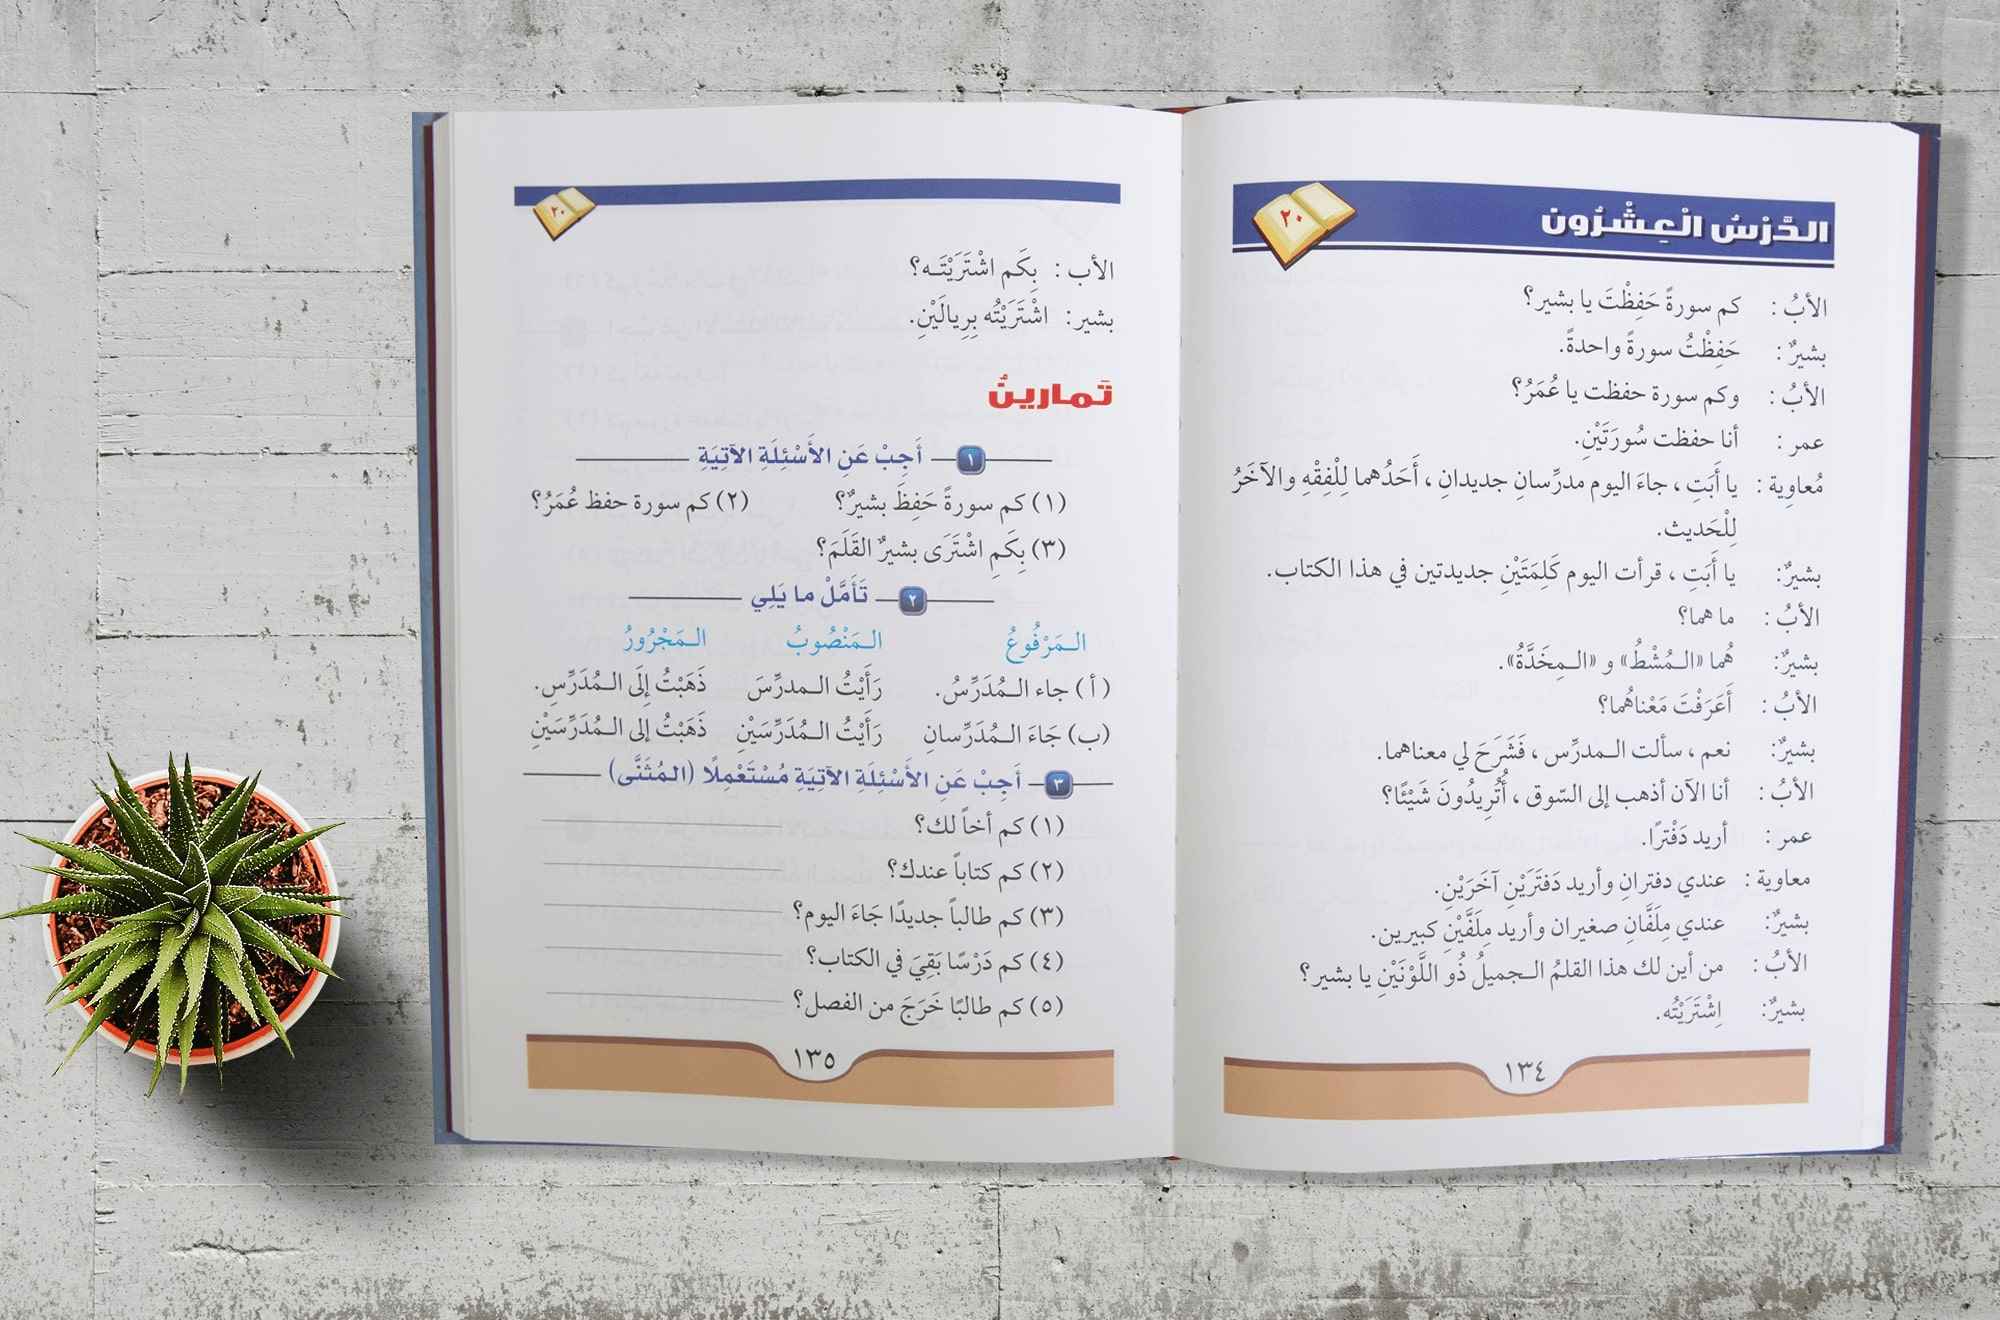 الدَّرْسُ الْعِشْرُون
٢٠
الأبُ : كم سورةً حَفِظْتَ يا بشير؟
بشيرٌ : حَفِظْتُ سورةً واحدةً.
الأبُ : وكم سورة حفظت يا عُمَرُ؟
عمر : أنا حفظت سُورَتَيْنِ.
مُعاوِية : يا أَبَتِ ، جاءَ اليوم مدرِّسانِ جديدانِ ، أَحَدُهما لِلْفِقْهِ والآخَرُ
لِلْحَديث.
بشيرٌ: يا أَبَتِ ، قرأت اليوم كَلِمَتَيْنِ جديدتين في هذا الكتاب.
الأبُ : ما هما؟
بشيرٌ: هُما «الـمُشْطُ» و «الـمِخَدَّةُ».
الأبُ : أَعَرَفْتَ مَعْناهُما؟
بشيرٌ: نعم ، سألت الـمدرِّس ، فَشَرَحَ لي معناهما.
الأبُ : أنا الآن أذهب إلى السّوق ، أَتُرِيدُونَ شَيْئًا؟
عمر : أريد دَفْترًا.
معاوية : عندي دفترانِ وأريد دَفتَرَيْن آخَرَيْنِ.
بشيرٌ: عندي مِلَفَّانِ صغيران وأريد مِلَفَّيْنِ كبيرين.
الأبُ : من أين لك هذا القلمُ الـجميلُ ذُو اللَّوْنَيْنِ يا بشير؟
بشيرٌ: اِشْتَرَيْتُه.
١٣٤
٢٠
الأب : بِكَم اشْتَرَيْتَـه؟
بشير: اشْتَرَيْتُه بِرِيالَيْنِ.
تَمارينُ
١ أَجِبْ عَنِ الأَسْئِلَةِ الآتِيَةِ
(١) كم سورةً حَفِظَ بشيرٌ؟ (٢) كم سورة حفظ عُمَرُ؟
(٣) بِكَمِ اشْتَرَى بشيرٌ القَلَمَ؟
٢ تَأَمَّلْ ما يَلِي
الـمَرْفُوعُ الـمَنْصُوبُ الـمَجْرُورُ
(أ) جاء الـمُدَرِّسُ. رَأَيْتُ الـمدرِّسَ ذَهَبْتُ إِلَى الـمُدَرِّسِ.
(ب) جَاءَ الـمُدَرِّسانِ رَأَيْتُ الـمُدَرِّسَيْنِ ذَهَبْتُ إلى الـمُدَرِّسَيْنِ
٣ أَجِبْ عَنِ الأَسْئِلَةِ الآتِيَةِ مُسْتَعْمِلًا (المُثَنَّى)
(١) كم أخاً لك؟
(٢) كم كتاباً عندك؟
(٣) كم طالباً جديدًا جَاءَ اليوم؟
(٤) كم دَرْسًا بَقِيَ في الكتاب؟
(٥) كم طالبًا خَرَجَ من الفصل؟
١٣٥